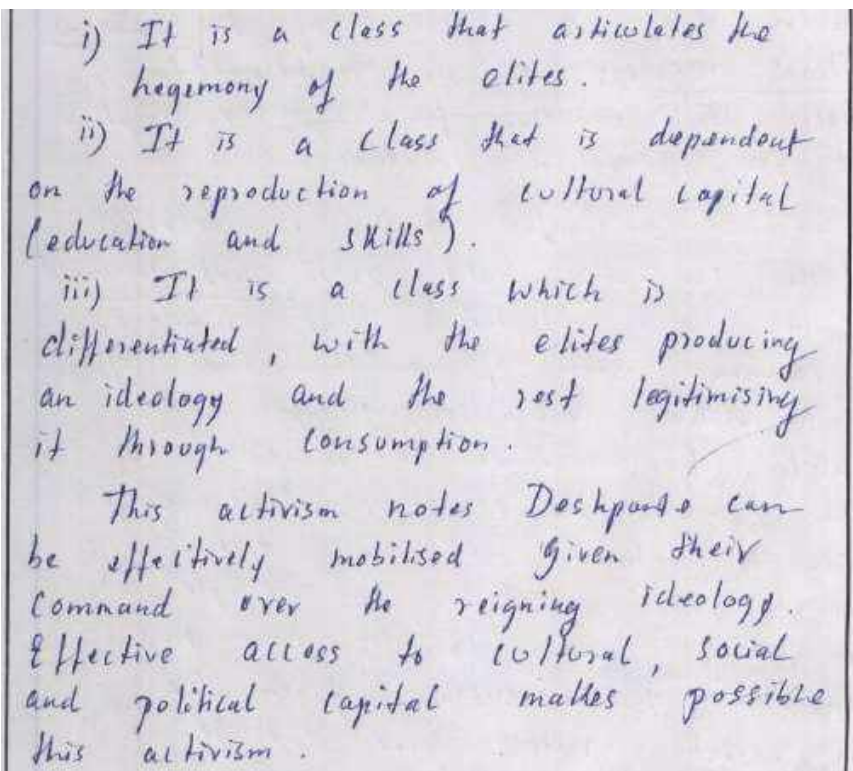 i) It is a class that articulates the
hegemony of the elites.
ii) It is a class that is dependent
on the reproduction of cultural capital
(education and skills).
iii) It is a class which is
differentiated, with the elites producing
an ideology and the rest legitimising
it through consumption.
This activism notes Deshpande can
be effectively mobilised given their
command over the reigning ideology.
Effective access to cultural, social
and political capital makes possible
this activism.